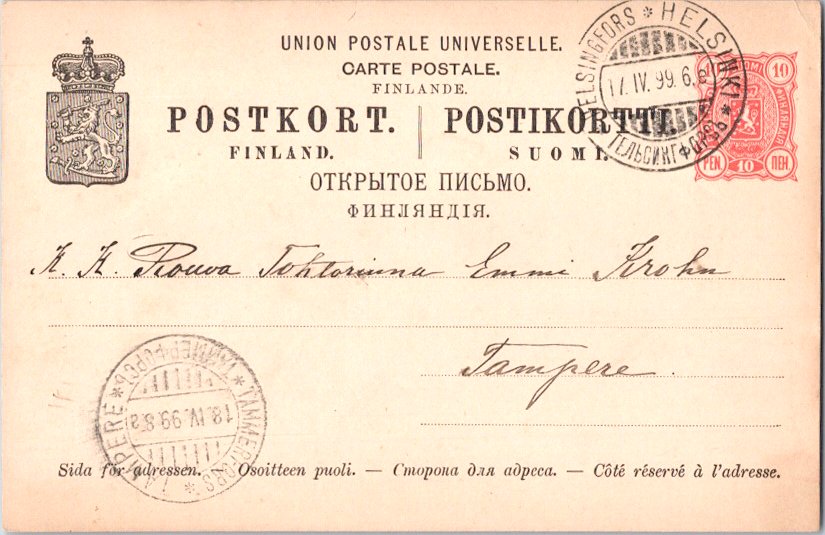 UNION POSTALE UNIVERSELLE.
CARTE POSTALE.
FINLANDE.
POSTKORT. POSTIKORTTI.
FINLAND. SUOMI.
ОТКРЫТОЕ ПИСЬМО.
ФИНЛЯНДІЯ.
HELSINGFORS * HELSINKI *
17.IV.99.6.e
ГЕЛЬСИНГФОРСЪ
10
ФИНЛЯНДІЯ
PEN 10 ПЕН
K. K. Rouva Tohtorinna Emmi Krohn
Tampere.
TAMPERE * TAMMERFORS * ТАММЕРФОРСЪ *
18.IV.99.8.a
Sida för adressen. — Osoitteen puoli. — Сторона для адреса. — Côté réservé à l'adresse.